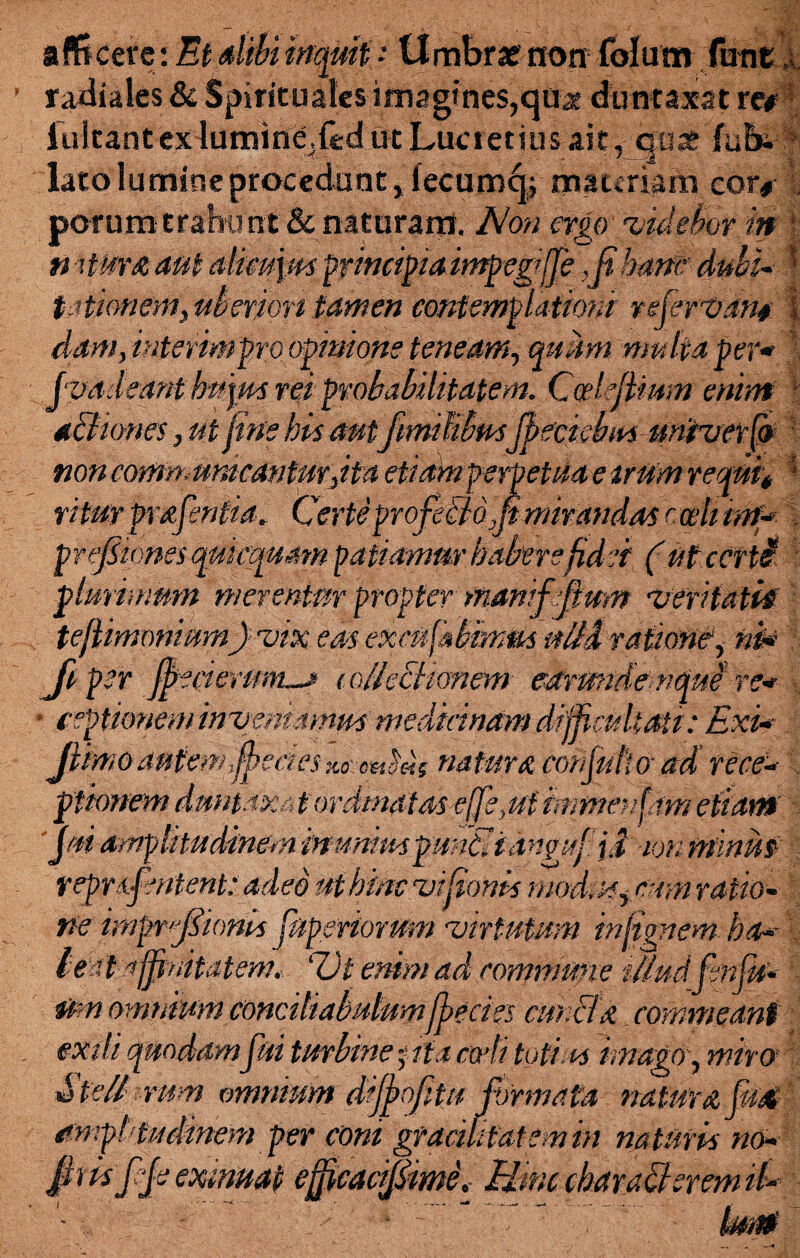 afficere: Et alibi inquit: Umbræ non ſolum ſunt
radiales & Spirituales imagines, quæ duntaxat re⸗
ſultant ex lumine, ſed ut Lucretius ait, quæ ſub-
lato lumine procedunt, ſecumq; materiam cor⸗
porum trahunt & naturam. Non ergo videbor in
naturæ aut alicujus principia impegiſſe, ſi hanc dubi-
tationem, uberiori tamen contemplationi reſervan⸗
dam, interim pro opinione teneam, quàm multa per-
ſvadeant hujus rei probabilitatem. Cœleſtium enim
actiones, ut ſine his aut ſimilibus ſpeciebus univerſo
non communicantur, ita etiam perpetua earum requi⸗
ritur præſentia. Certè profectò, ſi mirandas cœli im-
preſsiones quicquam patiamur habere fidei (ut certè
plurimum merentur propter manifeſtum veritatis
teſtimonium) vix eas excuſabimus ullâ ratione, ni-
ſi per ſpecierum collectionem earundemque re-
ceptionem inveniamus medicinam difficultati: Exi-
ſtimo autem ſpecies naturæ conſulto ad rece-
ptionem duntaxat ordinatas eſſe, ut immenſam etiam
ſui amplitudinem in unius puncti anguſtiâ non minùs
repræſentent: adeò ut hinc viſionis modus, cum ratio-
ne impreſsionis ſuperiorum virtutum inſignem ha-
beat affinitatem. Ut enim ad commune illud ſenſu-
um omnium conciliabulum ſpecies cunctæ commeant
exili quodam ſui turbine, ita cœli totius imago, miro
Stellarum omnium diſpoſitu formata naturæ ſuæ
amplitudinem per coni gracilitatem in naturis no-
ſtris ſeſe exinuat efficaciſsimè. Hinc characterem il-
lum